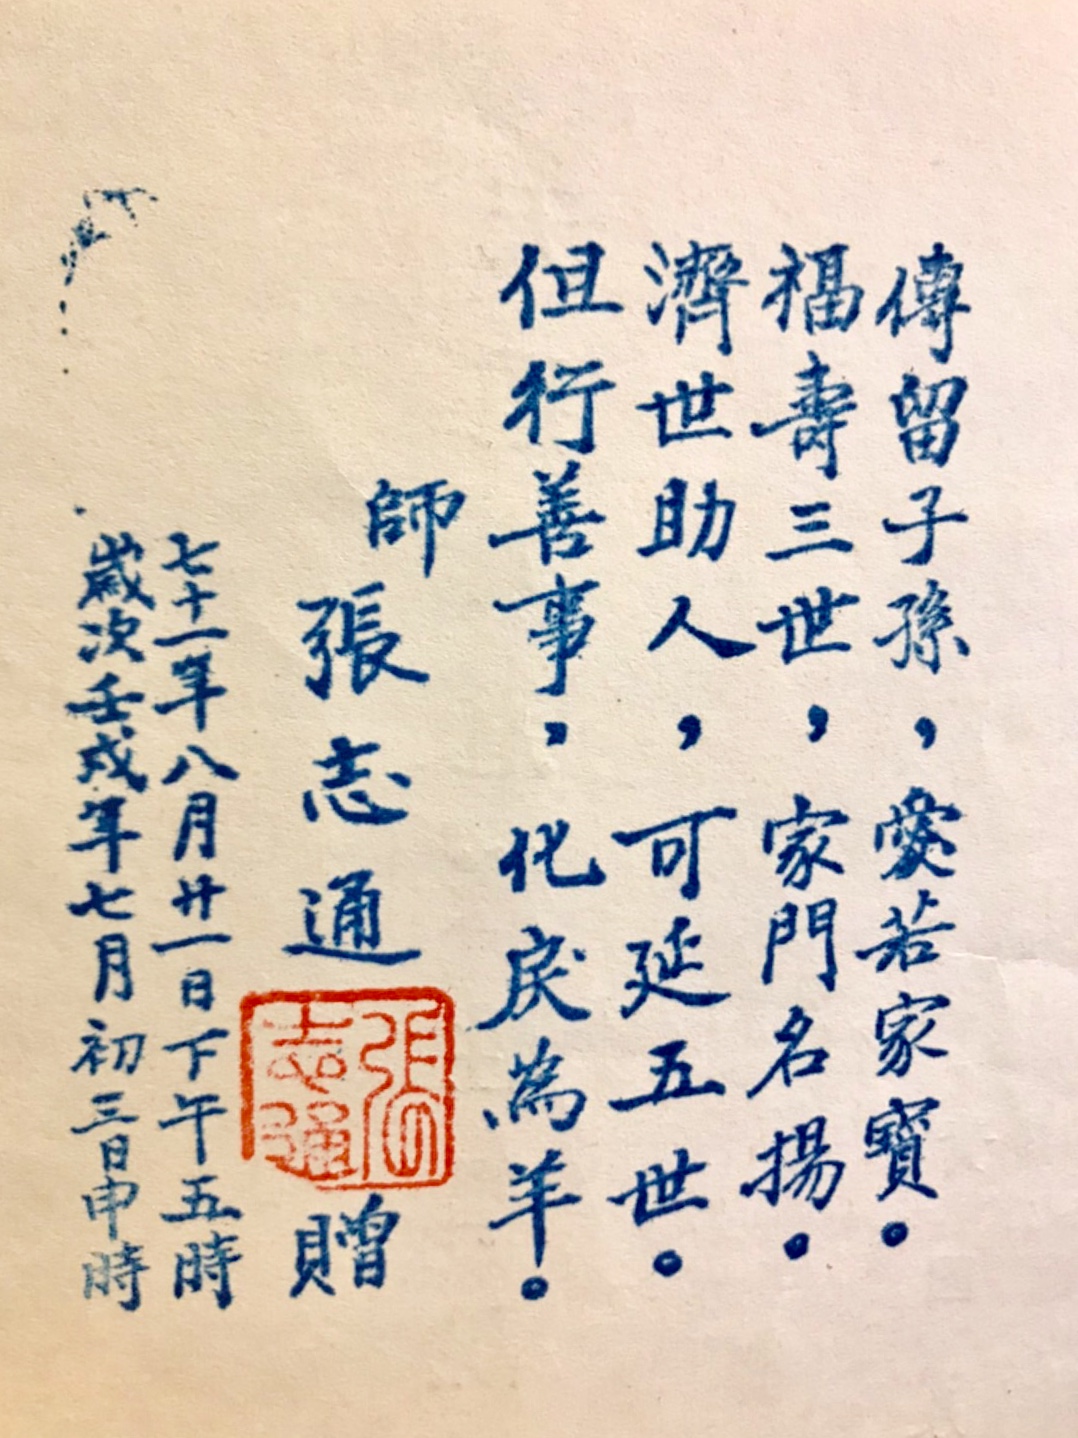 傳留子孫，愛若家寶。
福壽三世，家門名揚。
濟世助人，可延五世。
但行善事，化戾為羊。
師
張志通
張志通
贈
七十一年八月廿一日下午五時
歲次壬戌年七月初三日申時